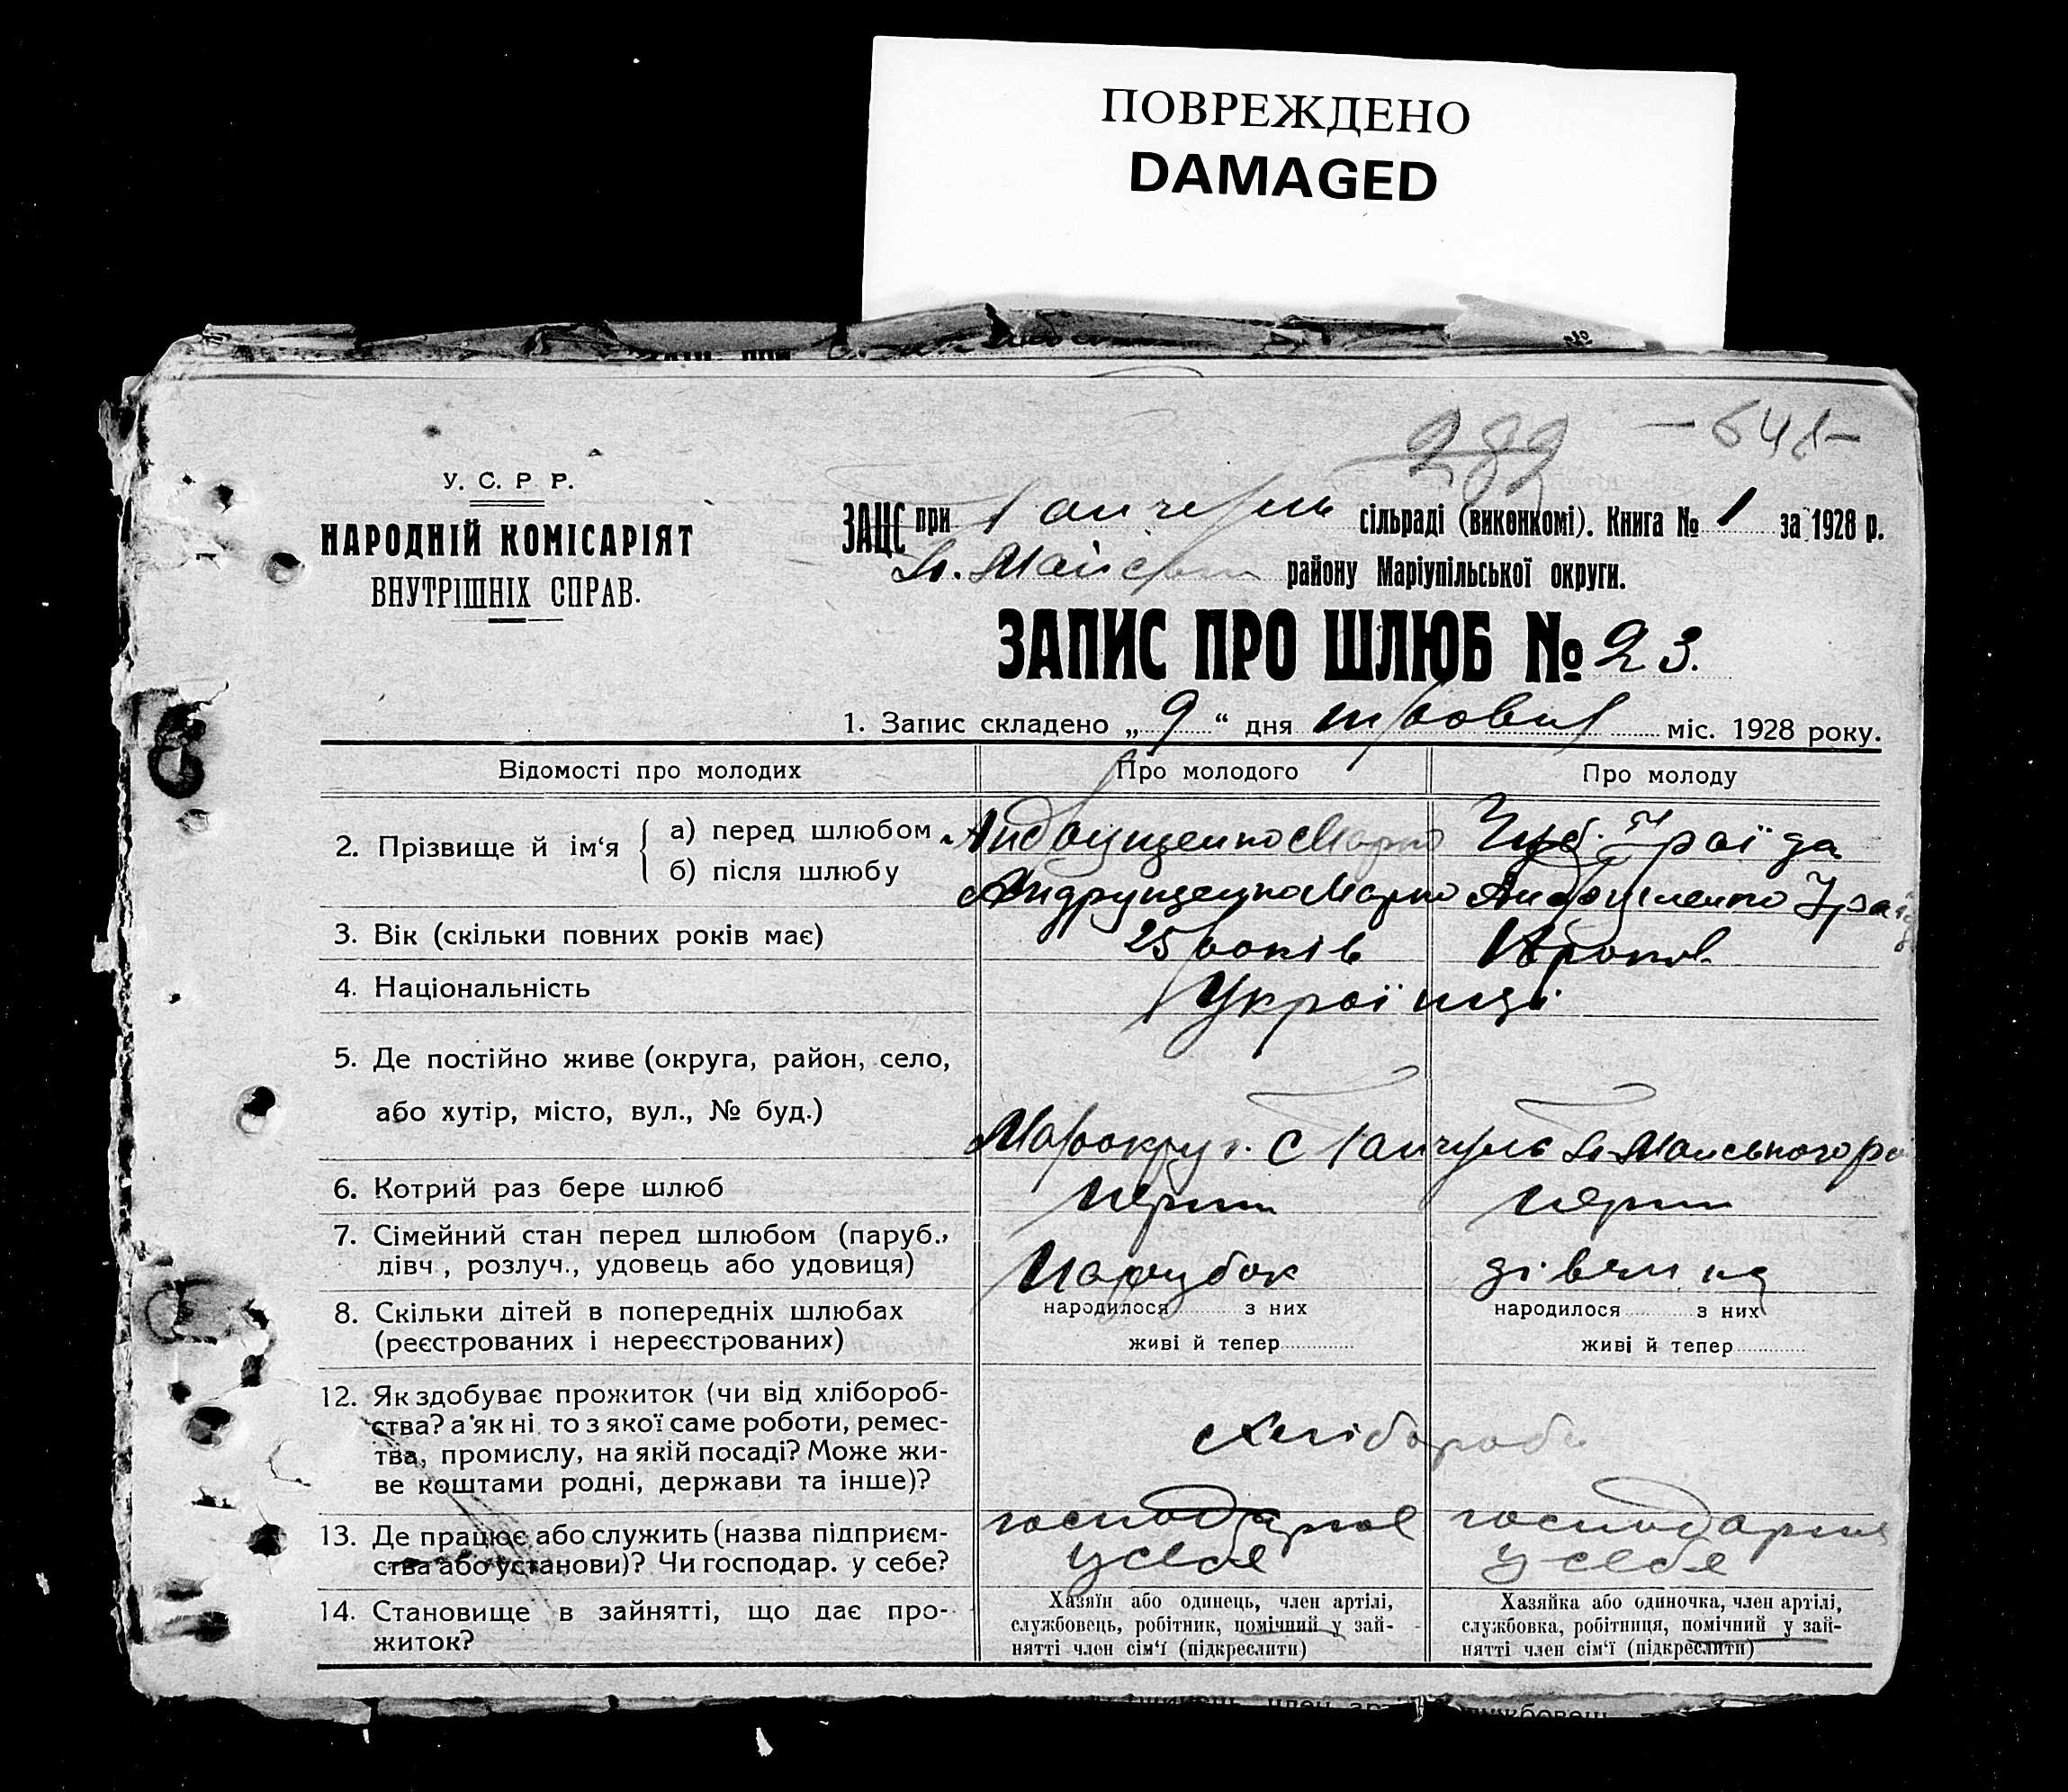 ПОВРЕЖДЕНО
DAMAGED
282 -648-
У. С. Р Р.
НАРОДНІЙ КОМІСАРІЯТ
ВНУТРІШНІХ СПРАВ.
ЗАЦС при сільраді (виконкомі). Книга № 1 за 1928 р.
району Маріупільської округи.
ЗАПИС ПРО ШЛЮБ № 23.
1. Запис складено „ 9 “ дня травня міс. 1928 року.
Відомості про молодих Про молодого Про молоду
2. Прізвище й ім‘я { а) перед шлюбом Андрущенко Марко Іраїда
б) після шлюбу Андрущенко Марко Андрущенко
3. Вік (скільки повних років має) 25 років років
4. Національність Українці
5. Де постійно живе (округа, район, село,
або хутір, місто, вул., № буд.)
Маріокруг. С
6. Котрий раз бере шлюб перший перший
7. Сімейний стан перед шлюбом (паруб.,
дівч., розлуч., удовець або удовиця) Парубок дівчина
8. Скільки дітей в попередніх шлюбах народилося з них народилося з них
(реєстрованих і нереєстрованих) живі й тепер живі й тепер
12. Як здобуває прожиток (чи від хлібороб-
ства? а як ні то з якої саме роботи, ремес-
тва, промислу, на якій посаді? Може жи-
ве коштами родні, держави та інше)?
Хлібороби
13. Де працює або служить (назва підприєм-
ства або установи)? Чи господар. у себе?
господарює господарює
у себе у себе
14. Становище в зайнятті, що дає про-
житок?
Хазяїн або одинець, член артілі,
службовець, робітник, помічний у зай-
нятті член сім‘ї (підкреслити)
Хазяйка або одиночка, член артілі,
службовка, робітниця, помічний у зай-
нятті член сім‘ї (підкреслити)